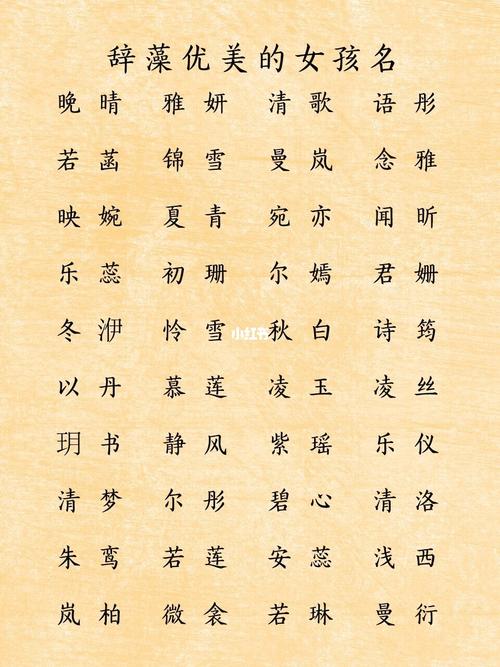 辞藻优美的女孩名
晚晴 雅妍 清歌 语彤
若菡 锦雪 曼岚 念雅
映婉 夏青 宛亦 闻昕
乐蕊 初珊 尔嫣 君姗
冬洢 怜雪 秋白 诗筠
小红书
以丹 慕莲 凌玉 凌丝
玥书 静风 紫瑶 乐仪
清梦 尔彤 碧心 清洛
朱鸾 若莲 安蕊 浅西
岚柏 微衾 若琳 曼衍